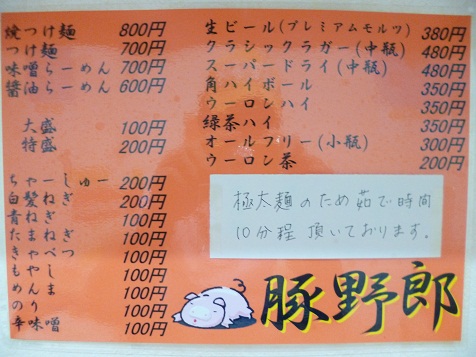 焼つけ麺 800円
つけ麺 700円
味噌らーめん 700円
醤油らーめん 600円
大盛 100円
特盛 200円
ちゃーしゅー 200円
白髪ねぎ 200円
青ねぎ 100円
たまねぎ 100円
きゃべつ 100円
もやし 100円
めんま 100円
のり 100円
辛味噌 100円
生ビール(プレミアムモルツ) 380円
クラシックラガー(中瓶) 480円
スーパードライ(中瓶) 480円
角ハイボール 350円
ウーロンハイ 350円
緑茶ハイ 350円
オールフリー(小瓶) 300円
ウーロン茶 200円
極太麺のため茹で時間
10分程頂いております。
豚野郎